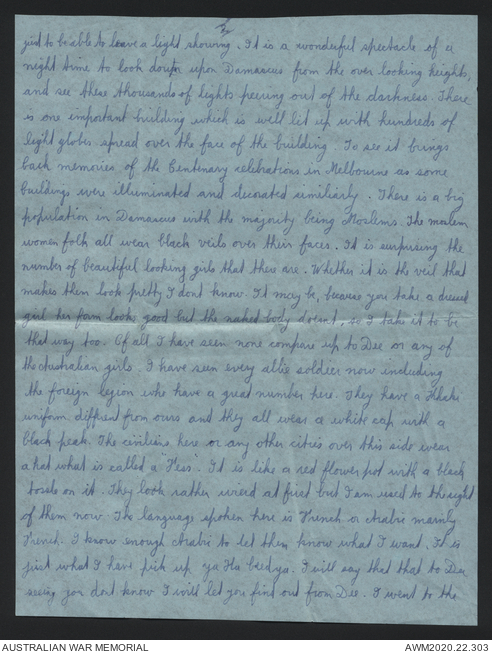 just to be able to leave a light showing. It is a wonderful spectacle of a
night time to look down upon Damascus from the over looking heights,
and see these thousands of lights peering out of the darkness. There
is one important building which is well lit up with hundreds of
light globes spread over the face of the building. To see it brings
back memories of the Centenary celebrations in Melbourne as some
buildings were illuminated and decorated similiarly. There is a big
population in Damascus with the majority being Moslems. The moslem
women folk all wear black veils over their faces. It is surprising the
number of beautiful looking girls that there are. Whether it is the veil that
makes them look pretty I dont know. It may be, because you take a dressed
girl her form looks good but the naked body doesnt, so I take it to be
that way too. Of all I have seen none compare up to Dee or any of
the Australian girls. I have seen every allie soldier now including
the foreign legion who have a great number here. They have a Khaki
uniform different from ours and they all wear a white cap with a
black peak. The civilians here or any other cities over this side wear
a hat what is called a "Fess". It is like a red flower pot with a black
tossle on it. They look rather wierd at first but I am used to the sight
of them now. The language spoken here is French or Arabic mainly
French. I know enough Arabic to let them know what I want. It is
just what I have pick up ya Ha I will say that that to Dee
seeing you dont know I will let you find out from Dee. I went to the
AUSTRALIAN WAR MEMORIAL
AWM2020.22.303